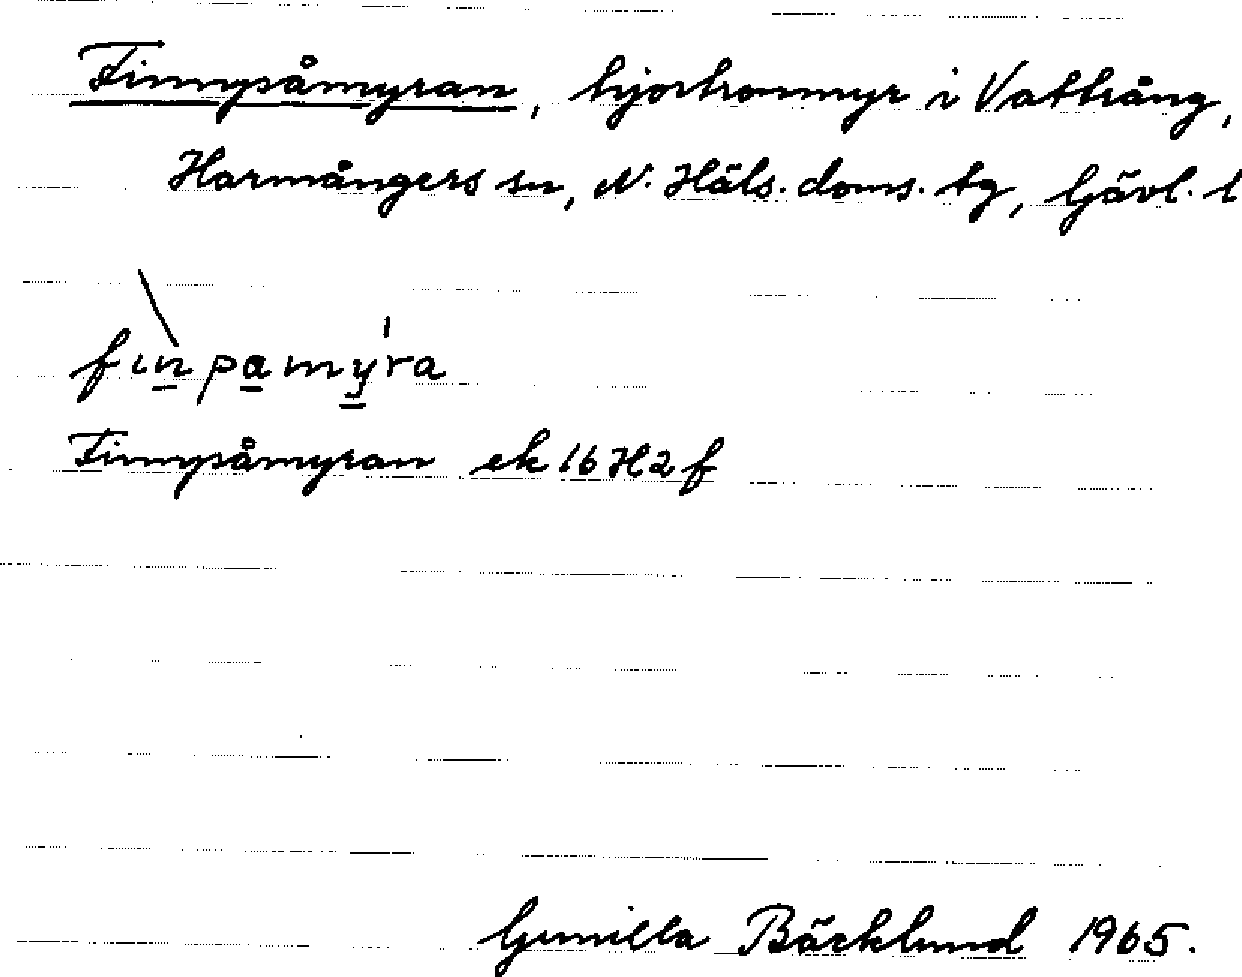 Finnpsåmyran, hjortronmyr i Vattrång,
Harmångers sn, N. Häls. doms. tg, Gävl. l
finpamyra
Finnpsåmyran ek 16H2f
Gunilla Bäcklund 1965.